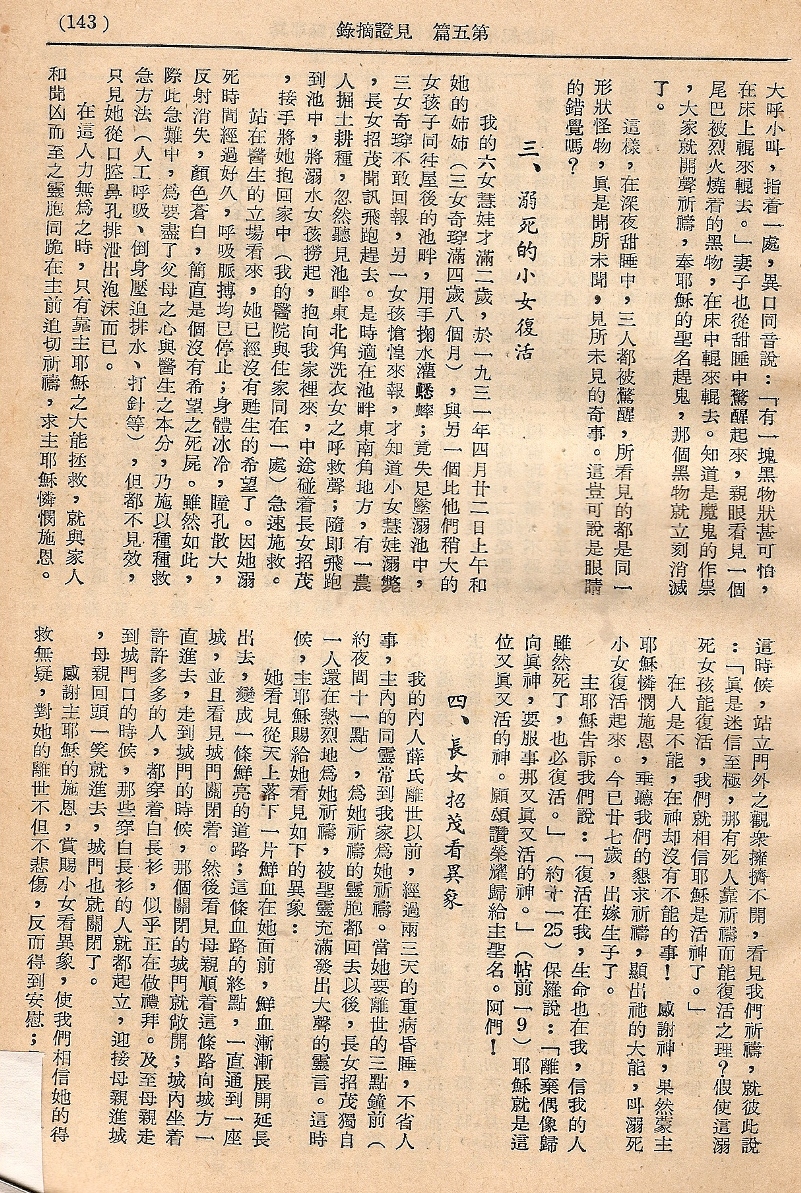 (143)
錄摘證見　篇五第
大呼小叫，指着一處，異口同音說：「有一塊黑物狀甚可怕，
在床上輥來輥去。」妻子也從甜睡中驚醒起來，親眼看見一個
尾巴被烈火燒着的黑物，在床中輥來輥去。知道是魔鬼的作祟
，大家就開聲祈禱，奉耶穌的聖名趕鬼，那個黑物就立刻消滅
了。
這樣，在深夜甜睡中，三人都被驚醒，所看見的都是同一
形狀怪物，眞是聞所未聞，見所未見的奇事。這豈可說是眼睛
的錯覺嗎？
三、溺死的小女復活
我的六女慧娃才滿二歲，於一九三一年四月廿二日上午和
她的姉姉（三女奇琇滿四歲八個月），與另一個比他們稍大的
女孩子同往屋後的池畔，用手掬水灌蟋蟀；竟失足墜溺池中，
三女奇琇不敢回報，另一女孩愴惶來報，才知道小女慧娃溺斃
，長女招茂聞訊飛跑趕去。是時適在池畔東南角地方，有一農
人掘土耕種，忽然聽見池畔東北角洗衣女之呼救聲；隨卽飛跑
到池中，將溺水女孩撈起，抱向我家裡來，中途碰着長女招茂
，接手將她抱回家中（我的醫院與住家同在一處）急速施救。
站在醫生的立場看來，她已經沒有甦生的希望了。因她溺
死時間經過好久，呼吸脈搏均已停止；身體冰冷，瞳孔散大，
反射消失，顏色蒼白，簡直是個沒有希望之死屍。雖然如此，
際此急難中，爲要盡了父母之心與醫生之本分，乃施以種種救
急方法（人工呼吸、倒身壓迫排水、打針等），但都不見效，
只見她從口腔鼻孔排泄出泡沫而已。
在這人力無爲之時，只有靠主耶穌之大能拯救，就與家人
和聞凶而至之靈胞同跪在主前迫切祈禱，求主耶穌憐憫施恩。
這時候，站立門外之觀衆擁擠不開，看見我們祈禱，就彼此說
：「眞是迷信至極，那有死人靠祈禱而能復活之理？假使這溺
死女孩能復活，我們就相信耶穌是活神了。」
在人是不能，在神却沒有不能的事！　感謝神，果然蒙主
耶穌憐憫施恩，垂聽我們的懇求祈禱，顯出祂的大能，叫溺死
小女復活起來。今已廿七歲，出嫁生子了。
主耶穌告訴我們說：「復活在我，生命也在我，信我的人
雖然死了，也必復活。」（約十一25）保羅說：「離棄偶像歸
向眞神，要服事那又眞又活的神。」（帖前一9）耶穌就是這
位又眞又活的神。願頌讚榮耀歸給主聖名。阿們！
四、長女招茂看異象
我的內人薛氏離世以前，經過兩三天的重病昏睡，不省人
事，主內的同靈常到我家爲她祈禱。當她要離世的三點鐘前（
約夜間十一點），爲她祈禱的靈胞都回去以後，長女招茂獨自
一人還在熱烈地爲她祈禱，被聖靈充滿發出大聲的靈言。這時
候，主耶穌賜給她看見如下的異象：
她看見從天上落下一片鮮血在她面前，鮮血漸漸展開延長
出去，變成一條鮮亮的道路；這條血路的終點，一直通到一座
城，並且看見城門關閉着。然後看見母親順着這條路向城方一
直進去，走到城門的時候，那個關閉的城門就敞開；城內坐着
許許多多的人，都穿着白長衫，似乎正在做禮拜。及至母親走
到城門口的時候，那些穿白長衫的人就都起立，迎接母親進城
，母親回頭一笑就進去，城門也就關閉了。
感謝主耶穌的施恩，賞賜小女看異象，使我們相信她的得
救無疑，對她的離世不但不悲傷，反而得到安慰；